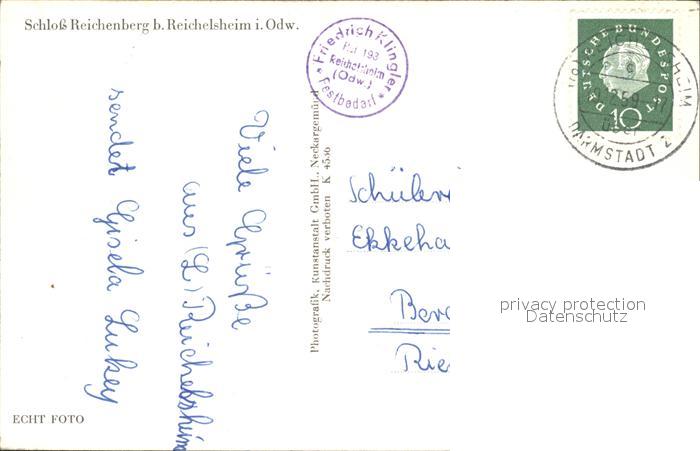 Schloß Reichenberg b. Reichelsheim i. Odw.
* Friedrich Klingler *
Ruf 193
Reichelsheim
(Odw.)
Festbedarf
DEUTSCHE BUNDESPOST
10
9
59
DARMSTADT 2
Viele Grüße
aus (L) Reichelsheim
sendet Gisela Lukey
Photografik, Kunstanstalt GmbH., Neckargemünd
Nachdruck verboten K 4536
Schüleri
Ekkeha
Rie
privacy protection
Datenschutz
ECHT FOTO